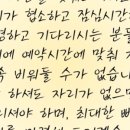 가 협소하고 잠심시간
렵하고 기다리시는 분들
에 예약시간에 맞춰 가
비워둘 수가 없습니
하셔도 자리가 없으며
리셔야 하며, 최대한 빠